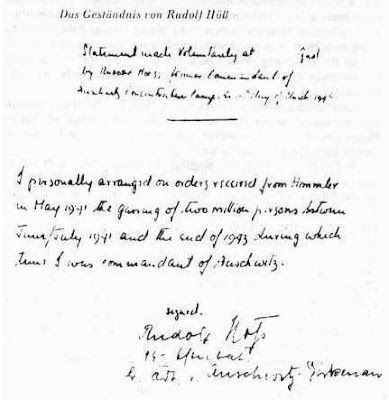 Das Geständnis von Rudolf Höß
Statement made voluntarily at Gaol
by Rudolf Hoess former Commandant of
Auschwitz Concentration Camp on day of March 1946
I personally arranged on orders received from Himmler
in May 1941 the gassing of two million persons between
June/July 1941 and the end of 1943 during which
time I was commandant of Auschwitz.
signed.
Rudolf Höß
SS-
Auschwitz-Birkenau